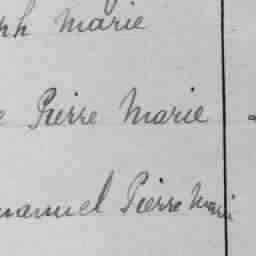 ph Marie
e Pierre Marie
manuel Pierre Mari